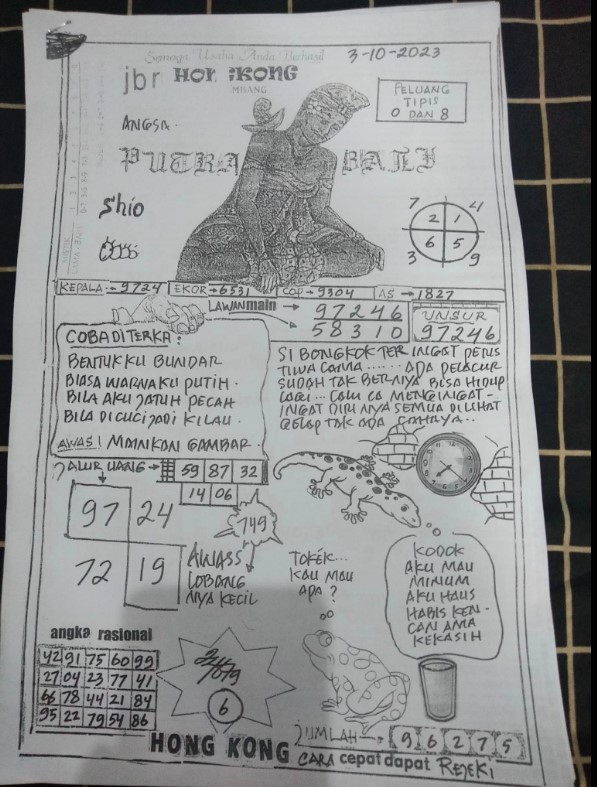 Semoga Usaha Anda Berhasil
3-10-2023
jbr HONGKONG
PELUANG
TIPIS
0 DAN 8
ANGSA.
PUTRA BALI
Shio
7 4
2 1
6 5
3 9
KEPALA → 9724 EKOR → 6531 COP → 9304 AS → 1827
LAWAN main → 97246
58310
UNSUR
97246
COBA DITERKA:
BENTUKKU BUNDAR
BIASA WARNAKU PUTIH.
BILA AKU JATUH PECAH
BILA DICUCI JADI KILAU.
AWAS! MAINKAN GAMBAR.
SI BONGKOK TERINGAT
ADA PELACUR
SUDAH TAK BERNYA BISA HIDUP
LAGI... MENGINGAT-
INGAT DIRINYA SEMUA DILIHAT
GELAP TAK ADA CAHAYA..
ALUR UANG → 59 87 32
14 06
97 24
749
72 19
AWASS
LOBANG
NYA KECIL
TOKÉK...
KAU MAU
APA?
KODOK
AKU MAU
MINUM
AKU HAUS
HABIS KEN-
CAN AMA
KEKASIH
angka rasional
42 91 75 60 99
27 04 23 77 41
66 78 44 21 84
95 22 79 54 86
6
JUMLAH → 9 6 2 7 5
HONG KONG CARA cepat dapat REJEKI